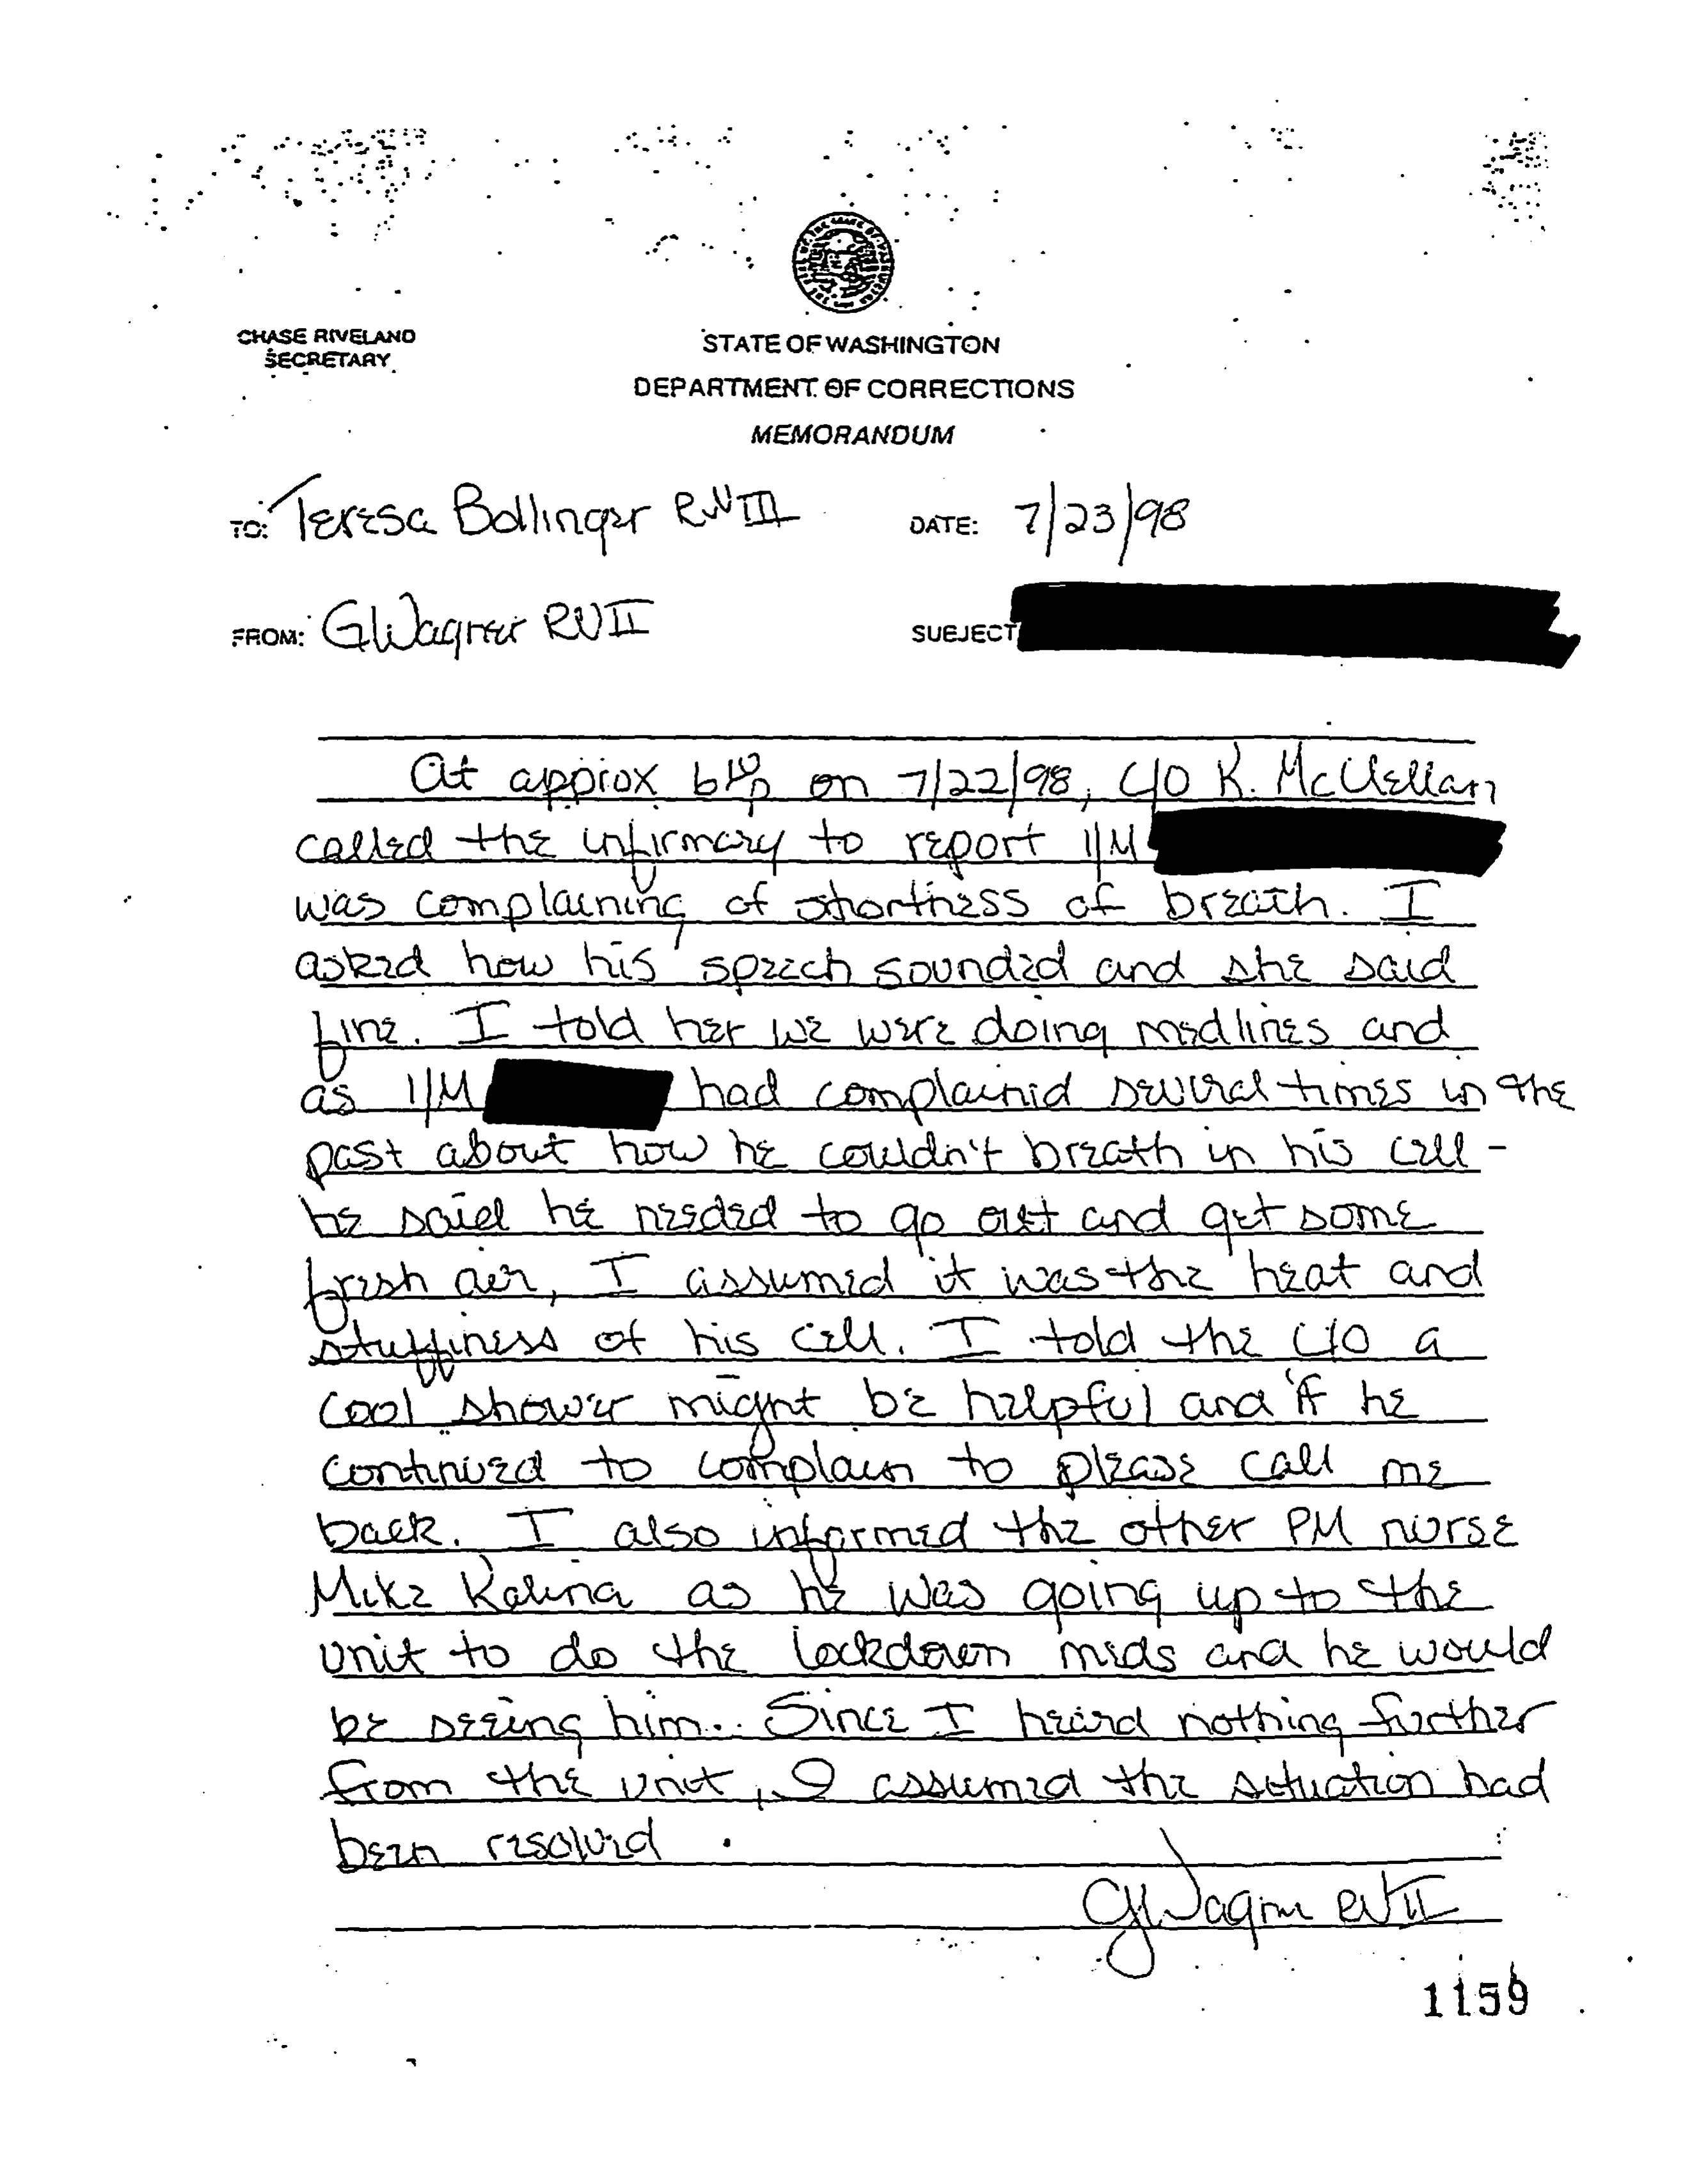 CHASE RIVELAND
SECRETARY
STATE OF WASHINGTON
DEPARTMENT OF CORRECTIONS
MEMORANDUM
TO: Teresa Bollinger RNIII DATE: 7/23/98
FROM: GWagner RNII SUBJECT
At approx 6 p on 7/22/98, C/O K. McClellan
called the infirmary to report I/M
was complaining of shortness of breath. I
asked how his speech sounded and she said
fine. I told her we were doing medlines and
as I/M had complained several times in the
past about how he couldn't breath in his cell -
he said he needed to go out and get some
fresh air, I assumed it was the heat and
stuffiness of his cell. I told the C/O a
cool shower might be helpful and if he
continued to complain to please call me
back. I also informed the other PM nurse
Mike Kalina as he was going up to the
unit to do the lockdown meds and he would
be seeing him. Since I heard nothing further
from the unit, I assumed the situation had
been resolved.
GWagner RNII
1159